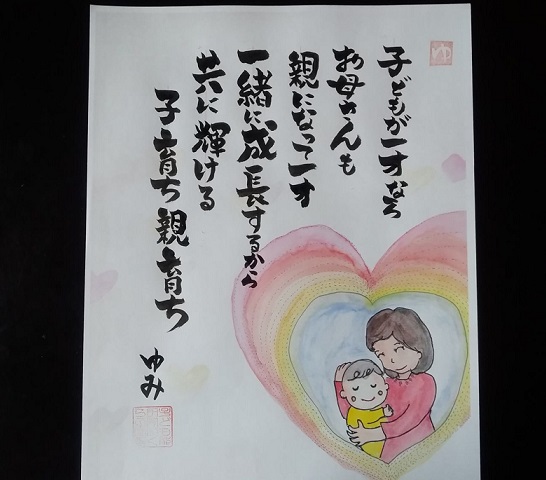 子どもが一才なら
お母さんも
親になって一才
一緒に成長するから
共に輝ける
子育ち親育ち
ゆみ
ゆ